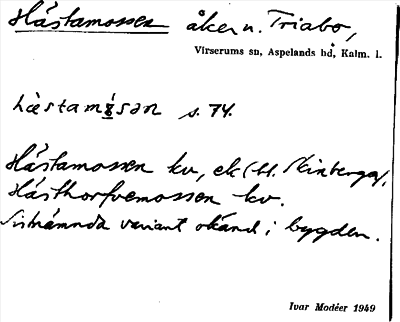 Hästamossen åker u. Triabo,
Virserums sn, Aspelands hd, Kalm. l.
hæstamåsən s. 74.
Hästamossen kv, ek (bl. Skinberga),
Hästhorfvemossen kv.
Sistnämnda variant okänd i bygden.
Ivar Modéer 1949